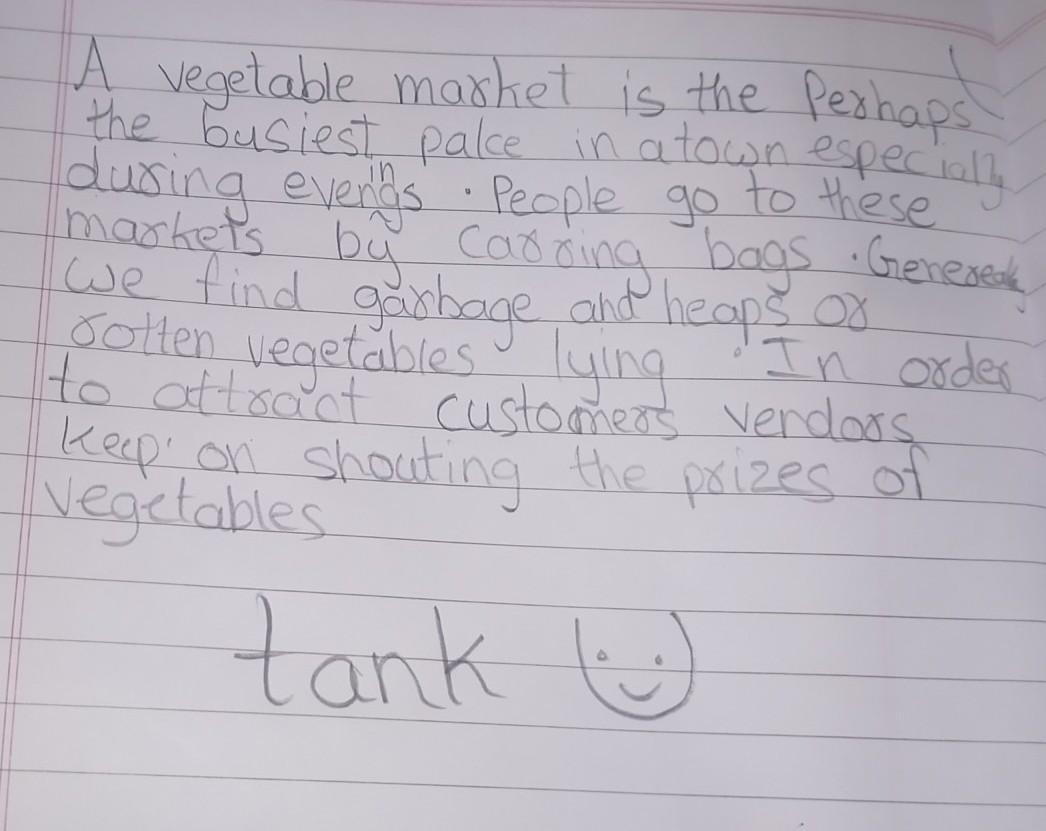 A vegetable market is the Perhaps
the busiest palce in a town especially
during evenings. People go to these
markets by carring bags. Generealy
we find garbage and heaps or
rotten vegetables lying. In order
to attract customers vendors
keep on shouting the prizes of
vegetables
tank